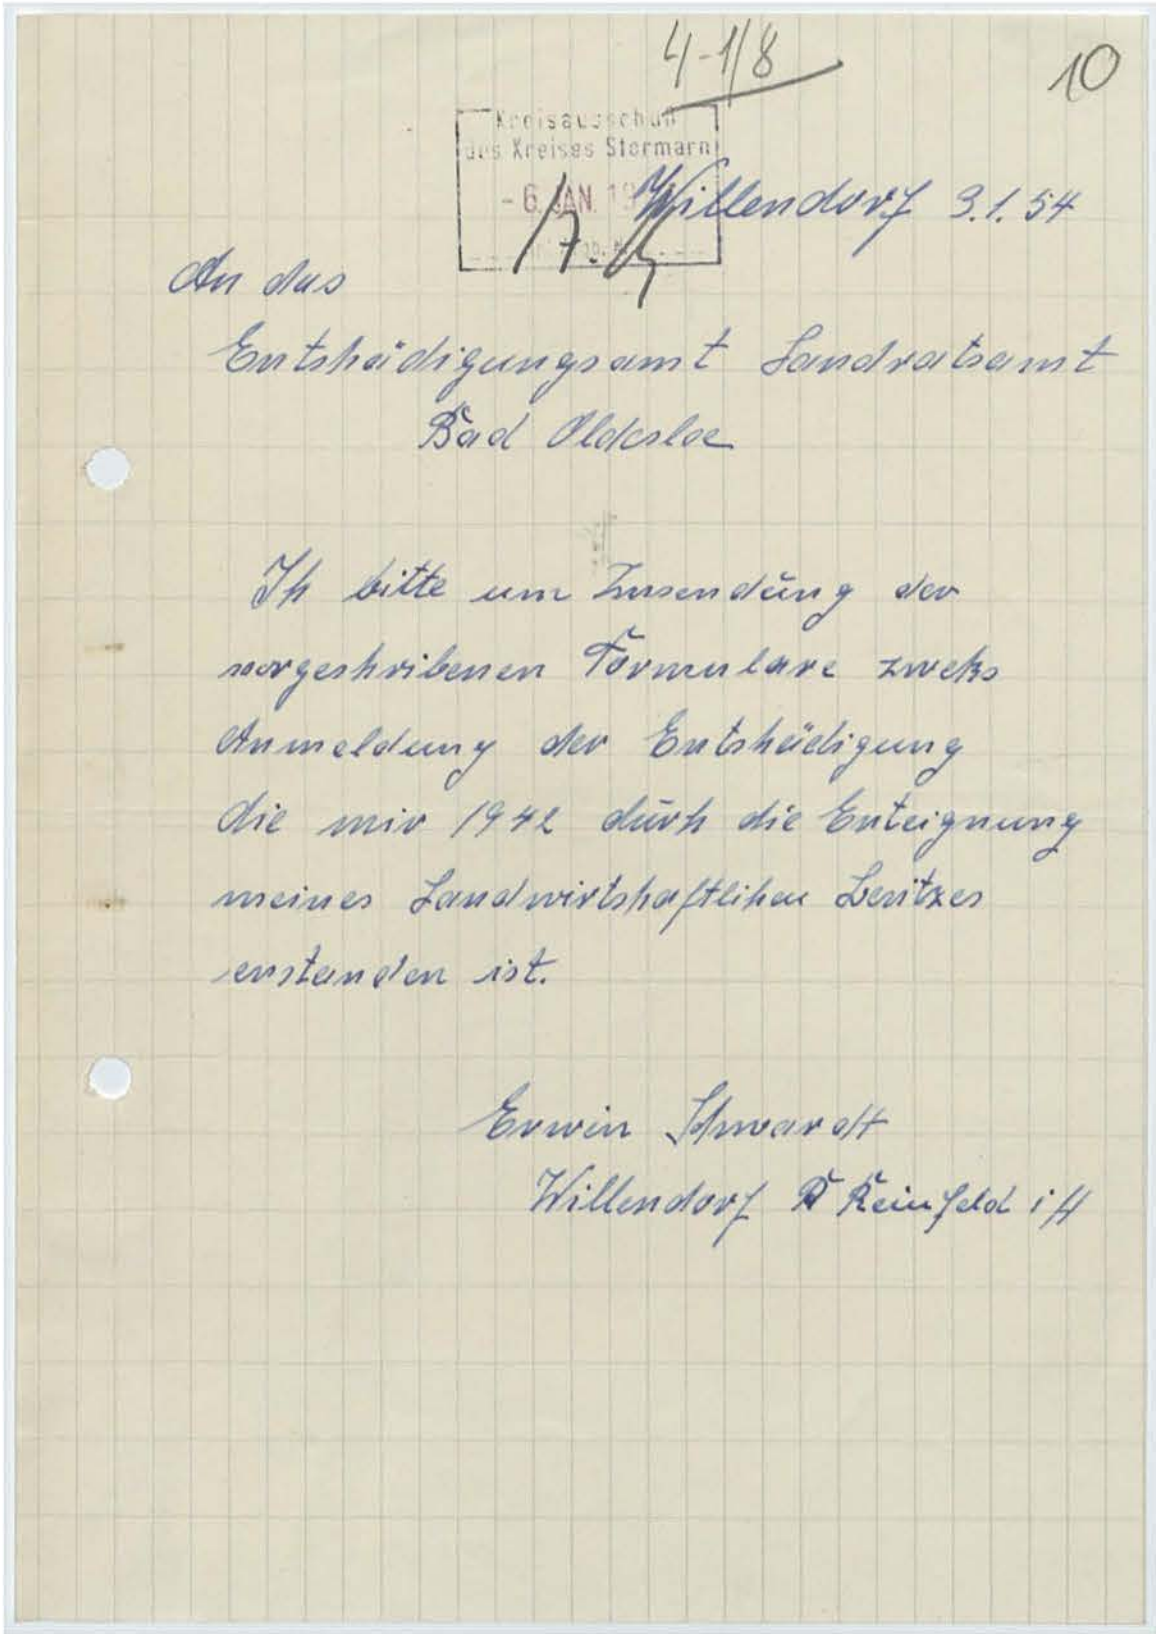 4-1/8
10
Kreisausschuß
des Kreises Stormarn
- 6. JAN. 19
Willendorf 3.1.54
An das
Entshädigungsamt Landratsamt
Bad Oldesloe
Ih bitte um Zusendung der
vorgeshribenen Formulare zweks
Anmeldung der Entshädigung
die mir 1942 durh die Enteignung
meines Landwirtshaftlihen Besitzes
enstanden ist.
Erwin Shwardt
Willendorf Reinfeld i/H